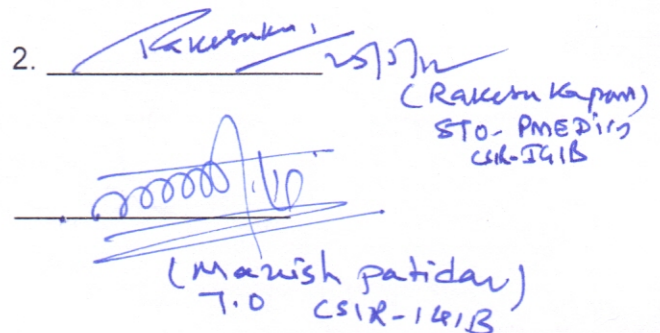 2. Rakesh 25/5/12
(Rakesh Kapoor)
STO-
CSIR-IGIB
(Manish patidar)
T.O CSIR-IGIB